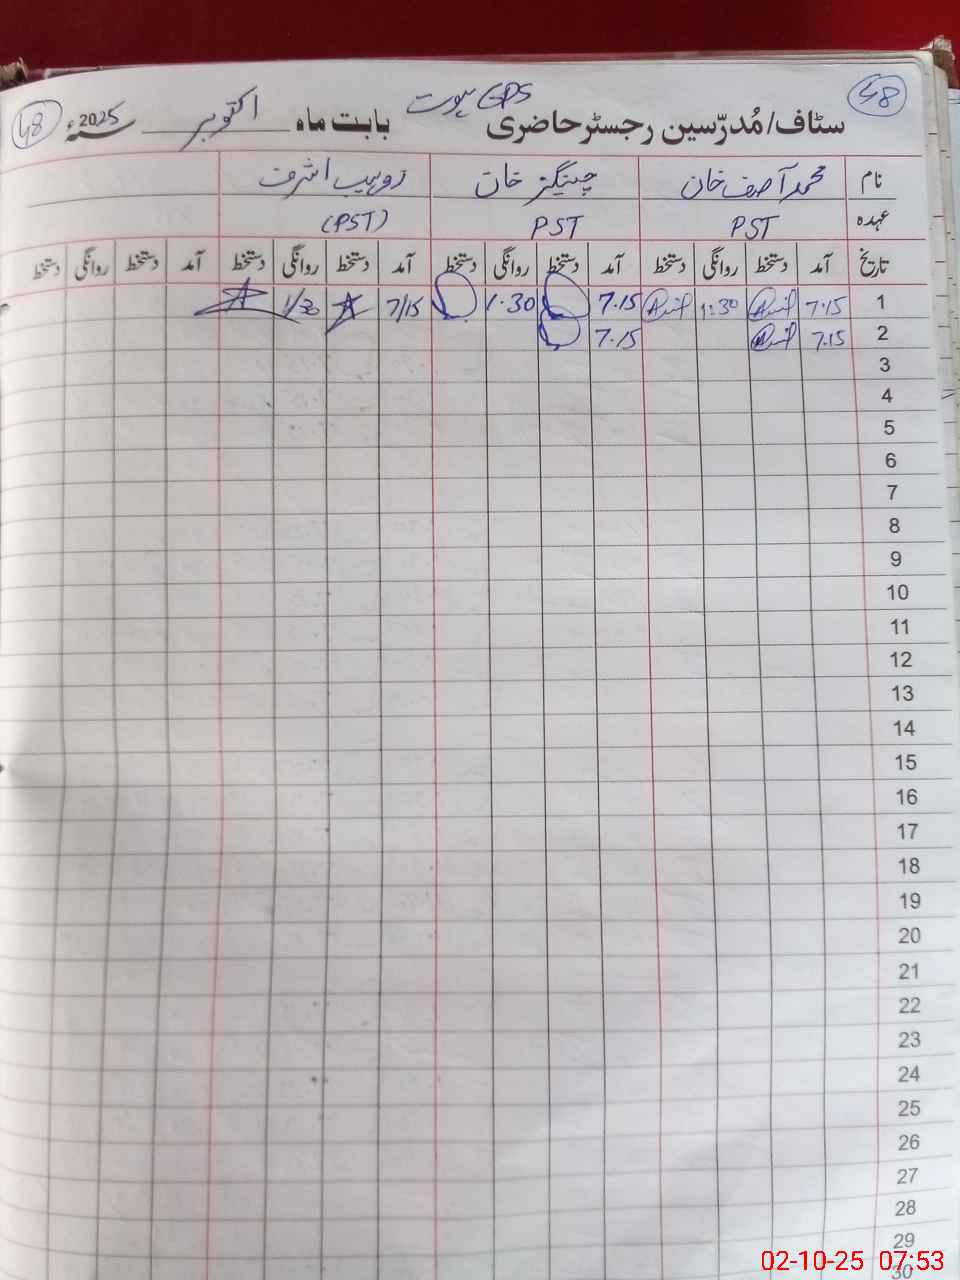 48
سٹاف/مُدرّسین رجسٹر حاضری GPS ہوت بابت ماہ اکتوبر سنۂ 2025
48
نام محمد آصف خان چنگیز خان زوہیب اشرف
عہدہ PST PST (PST)
تاریخ آمد دستخط روانگی دستخط آمد دستخط روانگی دستخط آمد دستخط روانگی دستخط آمد دستخط روانگی دستخط
1 7.15 Asif 1:30 Asif 7.15 1.30 7/15 1/30
2 7.15 Asif 7.15
3
4
5
6
7
8
9
10
11
12
13
14
15
16
17
18
19
20
21
22
23
24
25
26
27
28
29
30
02-10-25 07:53